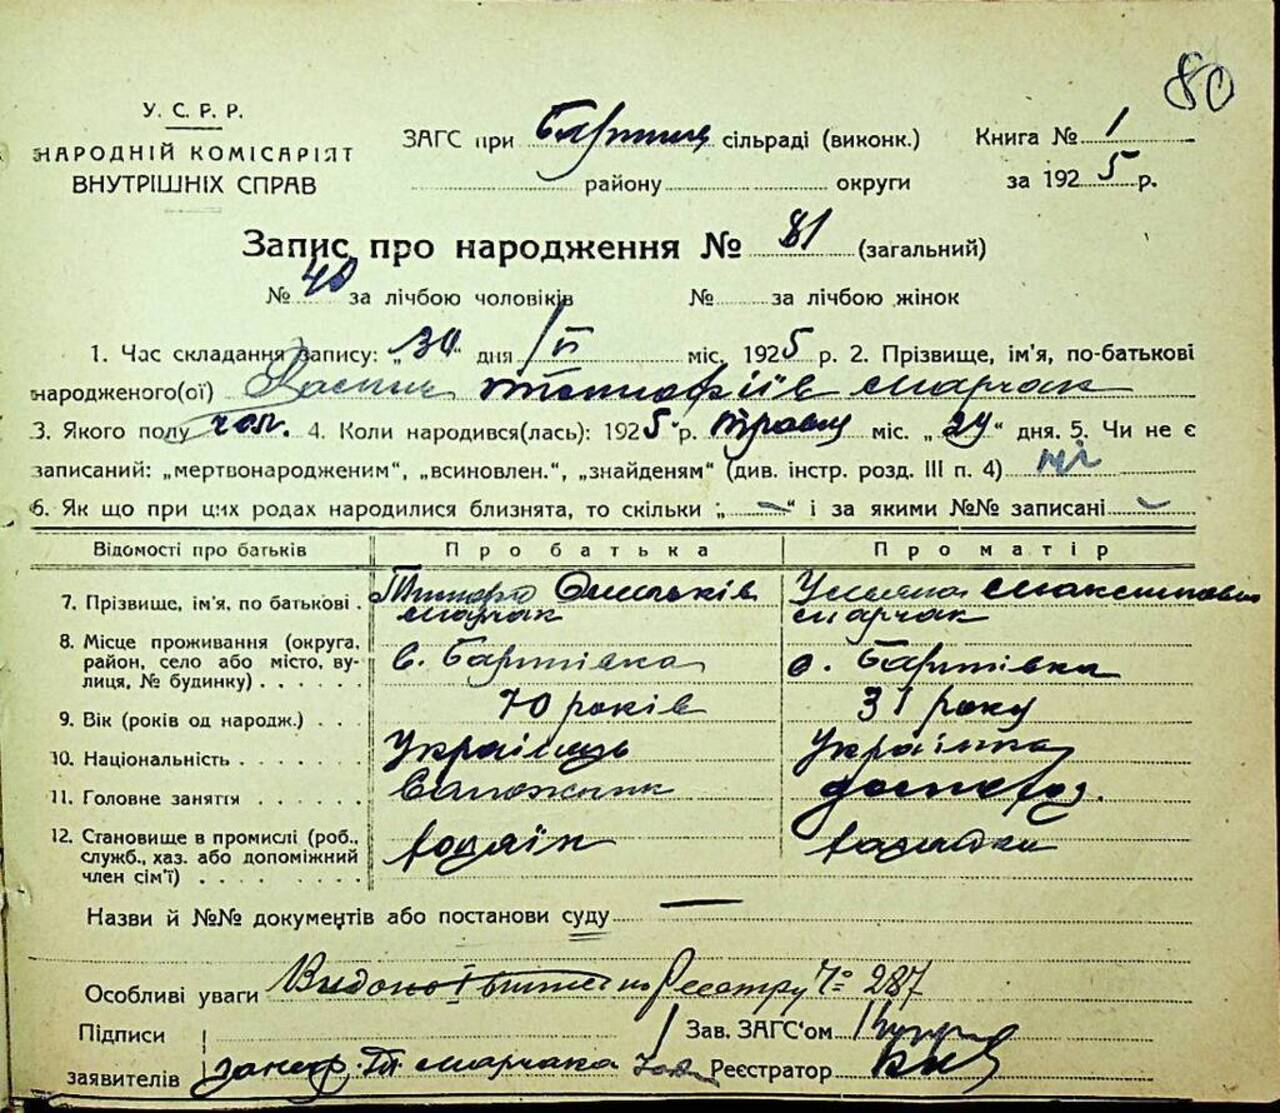 80
У. С. Р. Р.
НАРОДНІЙ КОМІСАРІЯТ
ВНУТРІШНІХ СПРАВ
ЗАГС при сільраді (виконк.)
району округи
Книга № 1
за 1925 р.
Запис про народження № 81 (загальний)
№ 40 за лічбою чоловіків № за лічбою жінок
1. Час складання запису: „30“ дня міс. 1925 р. 2. Прізвище, ім'я, по-батькові
народженого(ої) Марчак
3. Якого полу чол. 4. Коли народився(лась): 1925 р. травня міс. „24“ дня. 5. Чи не є
записаний: „мертвонародженим“, „всиновлен.“, „знайденям“ (див. інстр. розд. III п. 4) ні
6. Як що при цих родах народилися близнята, то скільки „—“ і за якими №№ записані —
Відомості про батьків Про батька Про матір
7. Прізвище, ім'я, по батькові . Марчак Уляна Максимовна Марчак
8. Місце проживання (округа, район, село або місто, вулиця, № будинку) . . . . . . с. Бартівка с. Бартівка
9. Вік (років од народж.) . . . 70 років 31 року
10. Національність . . . . . . . Українець Українка
11. Головне заняття . . . . . . Сапожник домогоз.
12. Становище в промислі (роб., служб., хаз. або допоміжний член сім'ї) . . . . . . . хазяїн хазяйка
Назви й №№ документів або постанови суду —
Особливі уваги по Реєстру № 287
Підписи
заявителів Марчака
Зав. ЗАГС'ом
Реєстратор